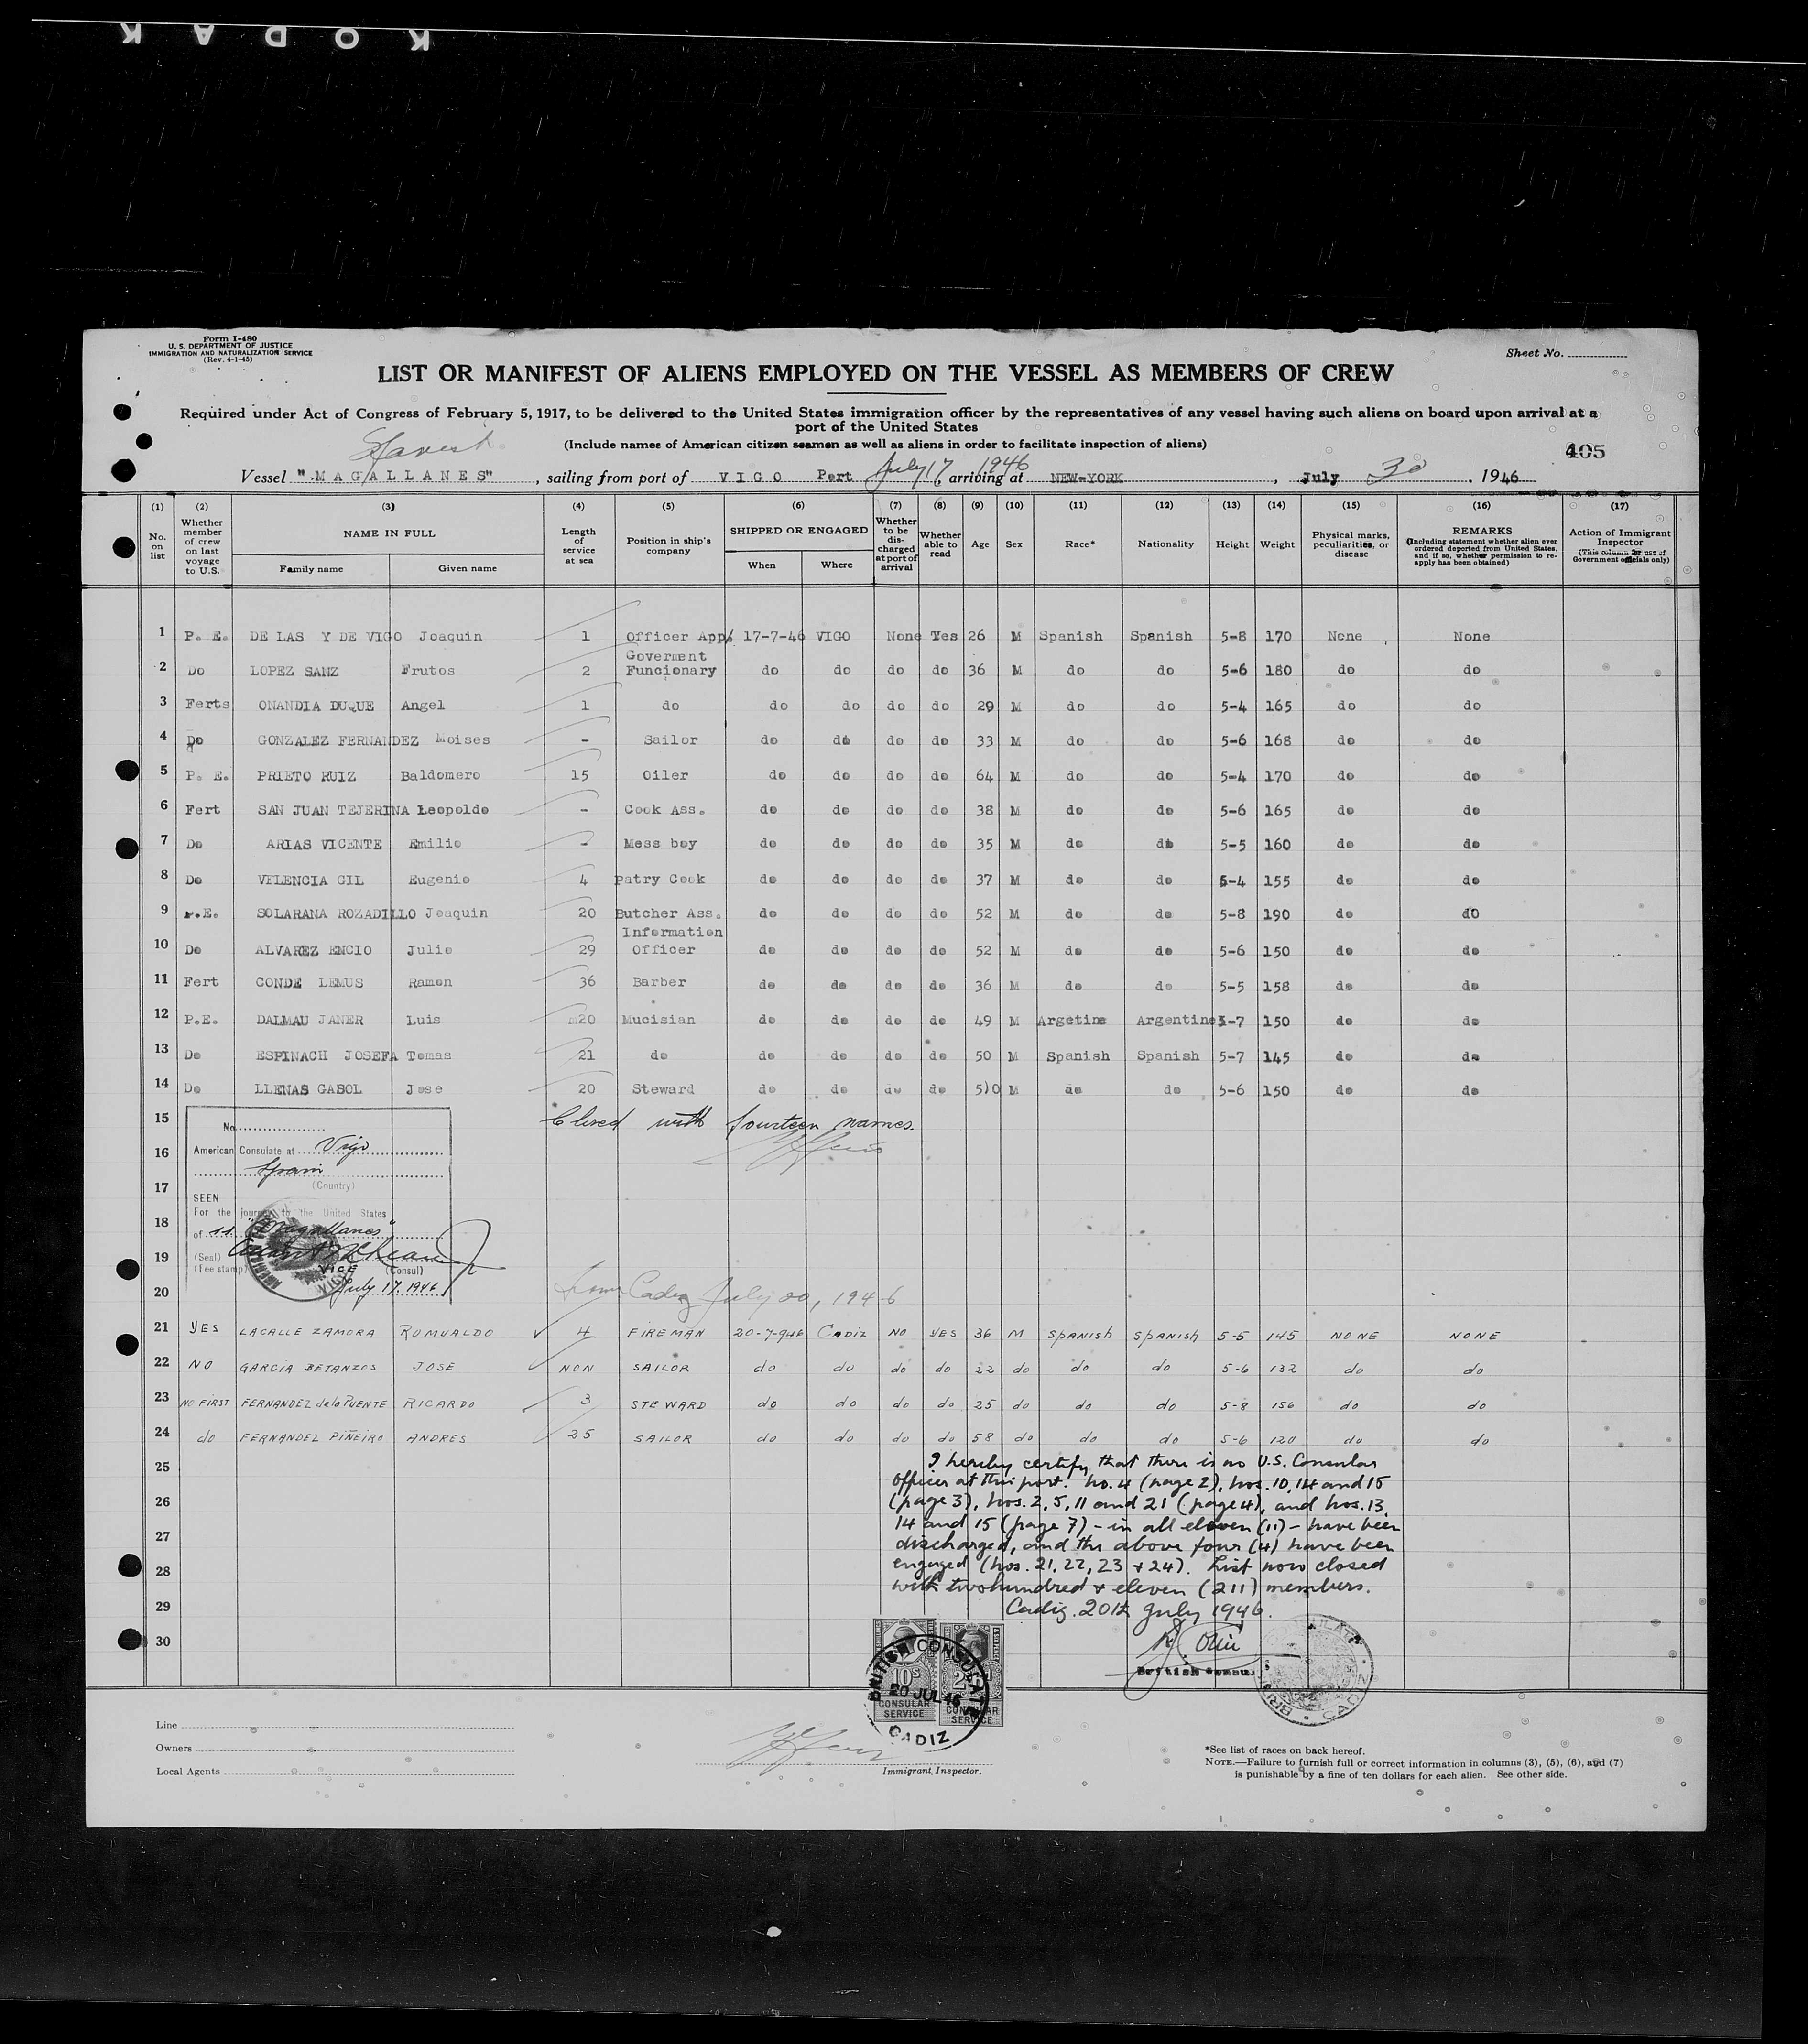 KODAK
Form I-480
U. S. DEPARTMENT OF JUSTICE
IMMIGRATION AND NATURALIZATION SERVICE
(Rev. 4-1-45)
Sheet No.
LIST OR MANIFEST OF ALIENS EMPLOYED ON THE VESSEL AS MEMBERS OF CREW
Required under Act of Congress of February 5, 1917, to be delivered to the United States immigration officer by the representatives of any vessel having such aliens on board upon arrival at a
port of the United States
(Include names of American citizen seamen as well as aliens in order to facilitate inspection of aliens)
405
Spanish
Vessel "MAGALLANES", sailing from port of VIGO Port July 17, 1946 arriving at NEW-YORK, July 30, 1946
(1) (2) (3) (4) (5) (6) (7) (8) (9) (10) (11) (12) (13) (14) (15) (16) (17)
No. on list
Whether member of crew on last voyage to U.S.
NAME IN FULL
Family name Given name
Length of service at sea
Position in ship's company
SHIPPED OR ENGAGED
When Where
Whether to be discharged at port of arrival
Whether able to read
Age
Sex
Race*
Nationality
Height
Weight
Physical marks, peculiarities, or disease
REMARKS
(Including statement whether alien ever ordered deported from United States, and if so, whether permission to reapply has been obtained)
Action of Immigrant Inspector
(This column for use of Government officials only)
1 P. E. DE LAS Y DE VIGO Joaquin 1 Officer App. 17-7-46 VIGO None Yes 26 M Spanish Spanish 5-8 170 None None
2 Do LOPEZ SANZ Frutos 2 Goverment Funcionary do do do do 36 M do do 5-6 180 do do
3 Ferts ONANDIA DUQUE Angel 1 do do do do do 29 M do do 5-4 165 do do
4 Do GONZALEZ FERNANDEZ Moises - Sailor do do do do 33 M do do 5-6 168 do do
5 P. E. PRIETO RUIZ Baldomero 15 Oiler do do do do 64 M do do 5-4 170 do do
6 Fert SAN JUAN TEJERINA Leopoldo - Cook Ass. do do do do 38 M do do 5-6 165 do do
7 Do ARIAS VICENTE Emilio - Mess boy do do do do 35 M do do 5-5 160 do do
8 Do VELENCIA GIL Eugenio 4 patry Cook do do do do 37 M do do 5-4 155 do do
9 P.E. SOLARANA ROZADILLO Joaquin 20 Butcher Ass. do do do do 52 M do do 5-8 190 do dO
10 Do ALVAREZ ENCIO Julio 29 Information Officer do do do do 52 M do do 5-6 150 do do
11 Fert CONDE LEMUS Ramon 36 Barber do do do do 36 M do do 5-5 158 do do
12 P.E. DALMAU JANER Luis 20 Mucisian do do do do 49 M Argetine Argentine 5-7 150 do do
13 Do ESPINACH JOSEFA Tomas 21 do do do do do 50 M Spanish Spanish 5-7 145 do do
14 Do LLENAS GASOL Jose 20 Steward do do do do 50 M do do 5-6 150 do do
15 Closed with fourteen names.
16
17
18
19
20 from Cadiz July 20, 1946
No.
American Consulate at Vigo
Spain
(Country)
SEEN
For the journey to the United States
of ss. "Magallanes"
(Seal)
(Fee stamp) VICE (Consul)
July 17, 1946
21 YES LACALLE ZAMORA ROMUALDO 4 FIREMAN 20-7-946 CADIZ NO YES 36 M SPANISH SPANISH 5-5 145 NONE NONE
22 NO GARCIA BETANZOS JOSE NON SAILOR do do do do 22 do do do 5-6 132 do do
23 NO FIRST FERNANDEZ de la PUENTE RICARDO 3 STEWARD do do do do 25 do do do 5-8 156 do do
24 do FERNANDEZ PIÑEIRO ANDRES 25 SAILOR do do do do 58 do do do 5-6 120 do do
25
26
27
28
29
30
I hereby certify that there is no U.S. Consular
Officer at this port. No. 4 (page 2), nos. 10, 14 and 15
(page 3), nos. 2, 5, 11 and 21 (page 4), and nos. 13,
14 and 15 (page 7) - in all eleven (11) - have been
discharged, and the above four (4) have been
engaged (nos. 21, 22, 23 & 24). List now closed
with two hundred & eleven (211) members.
Cadiz. 20th July 1946.
British Consul
BRITISH CONSULATE
20 JUL 46
CADIZ
10s
CONSULAR SERVICE
CONSULAR SERVICE
Line
Owners
Local Agents
Immigrant Inspector.
*See list of races on back hereof.
NOTE.—Failure to furnish full or correct information in columns (3), (5), (6), and (7)
is punishable by a fine of ten dollars for each alien. See other side.